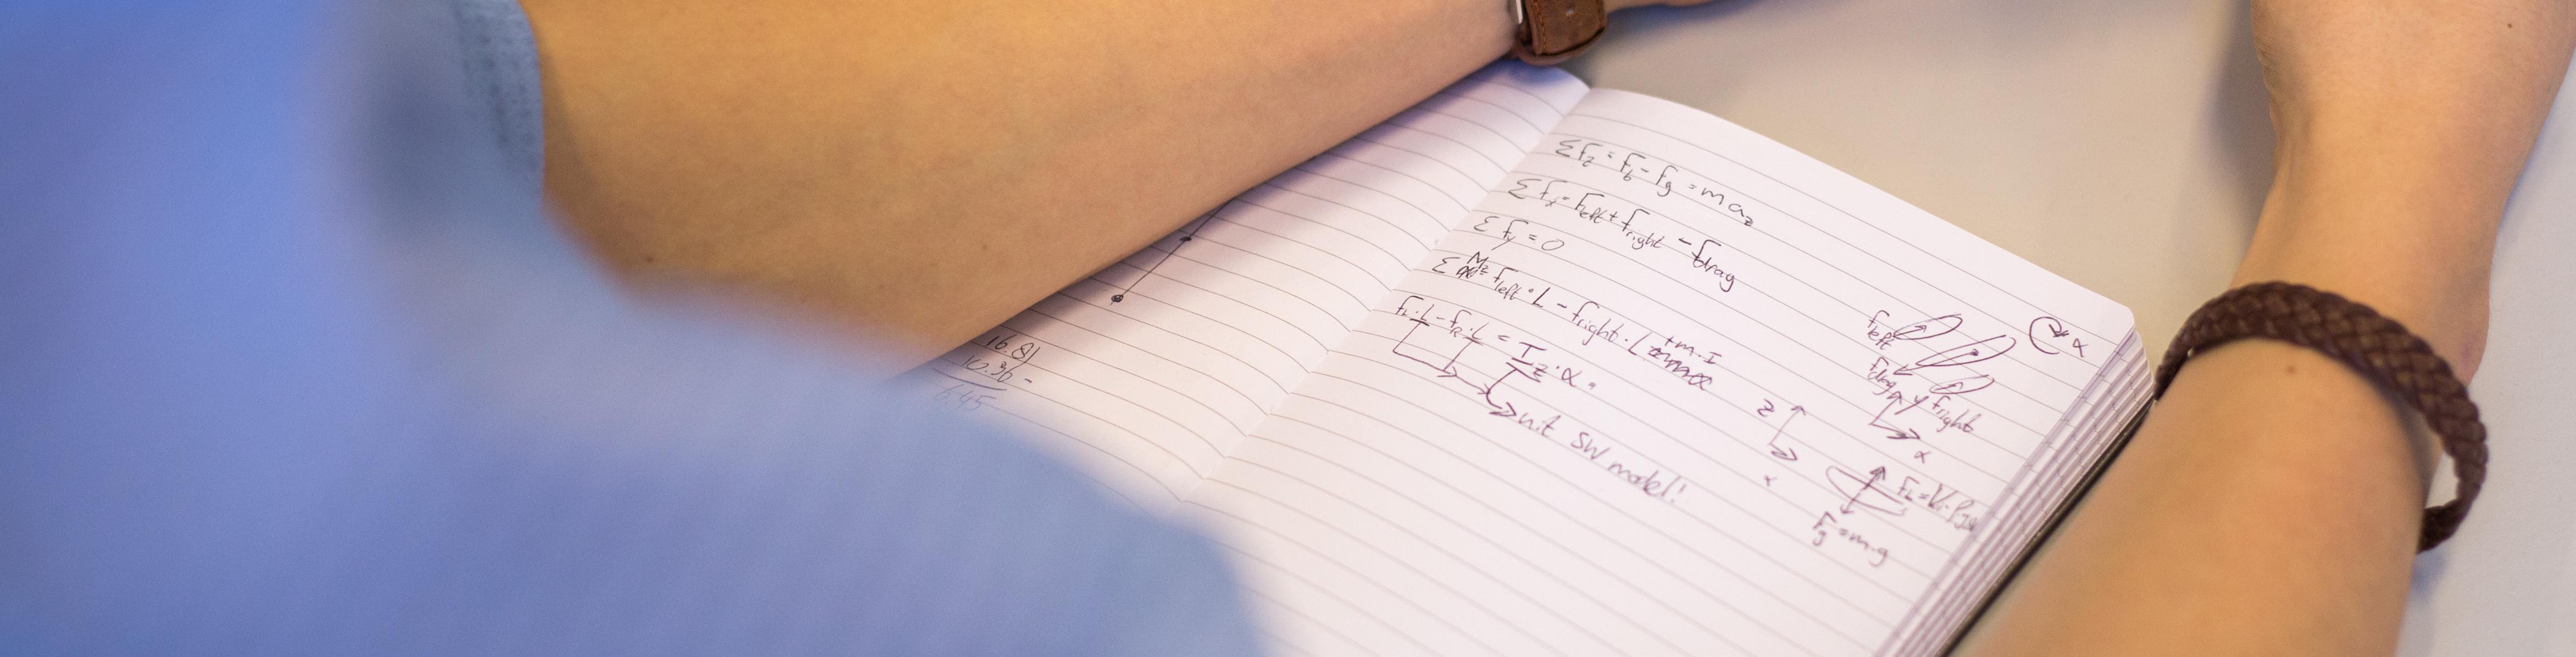 16.81
10.36 -
6.45
ΣFz = Fb - Fg = m az
ΣFx = Fleft + Fright - Fdrag
ΣFy = 0
ΣMz = Fleft · L - Fright · L + m · I
FL · L - FR · L = Iz · α
uit SW model!
Fleft
Fdrag
Fright
α
y
x
z
x
Fg = m · g